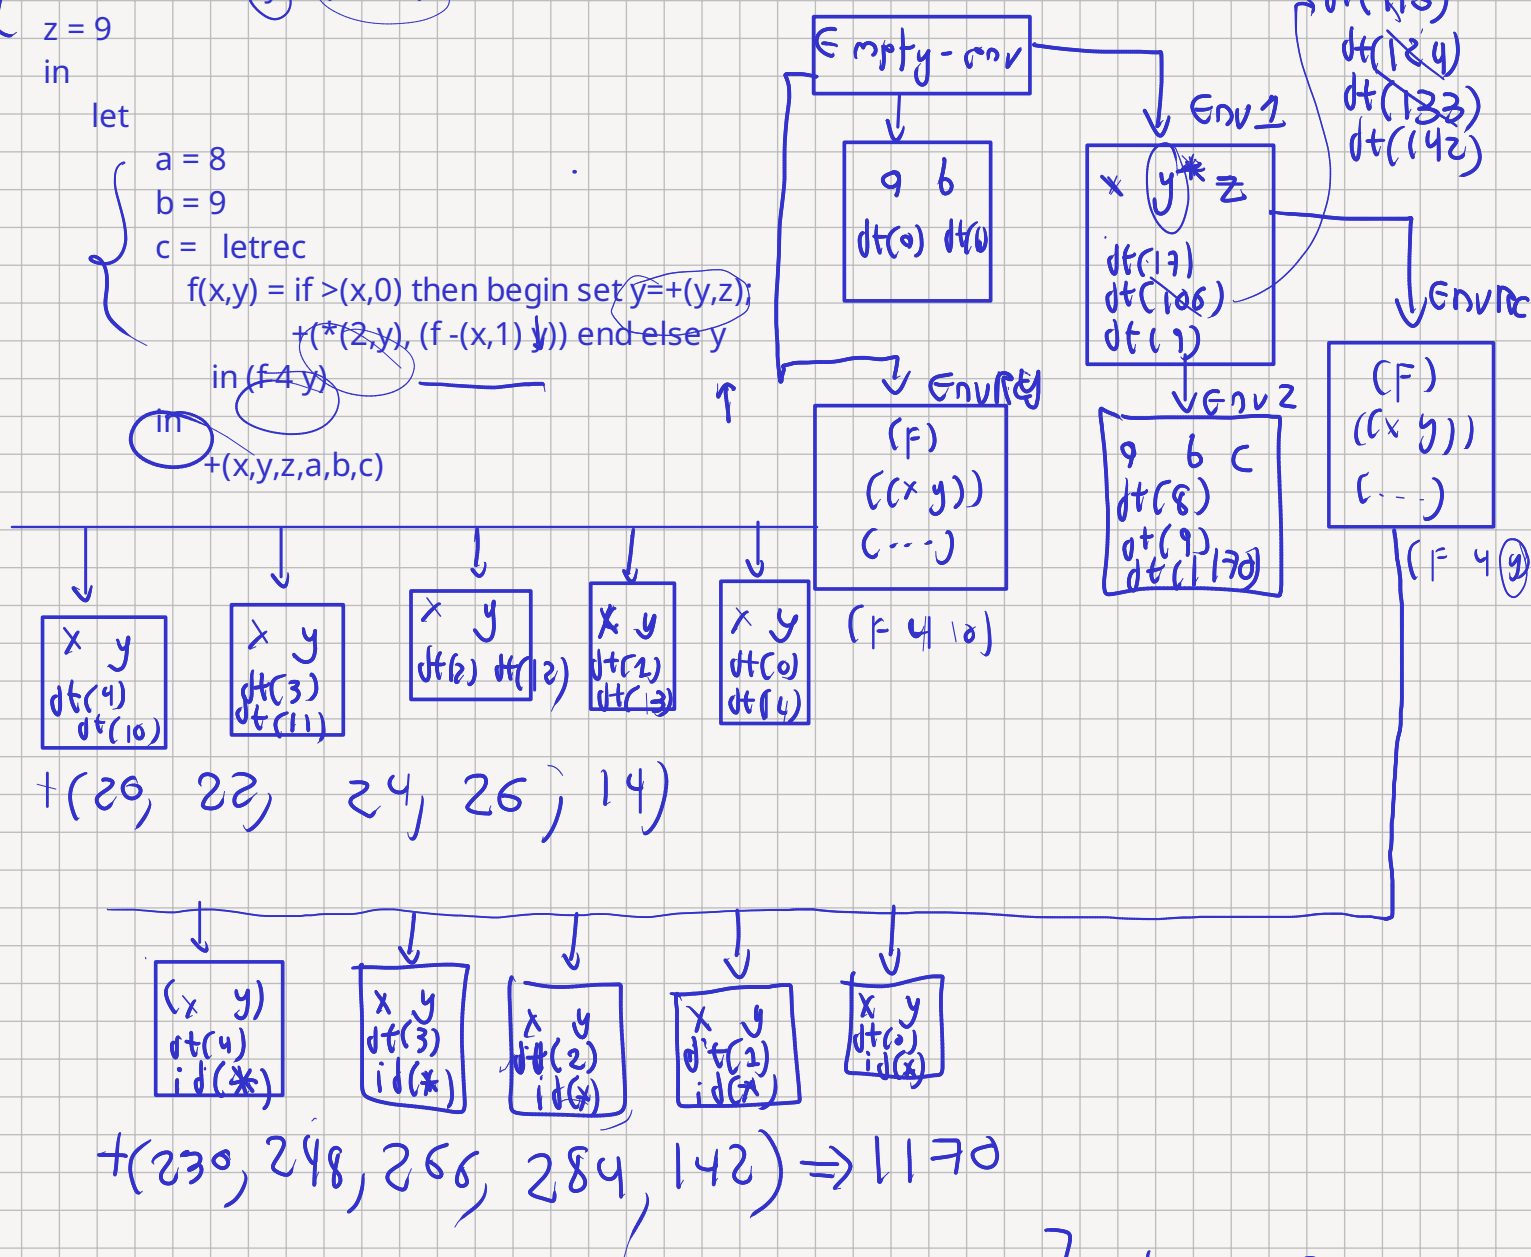 z = 9
in
let
a = 8
b = 9
c = letrec
f(x,y) = if >(x,0) then begin set y=+(y,z);
+(*(2,y), (f -(x,1) y)) end else y
in (f 4 y)
in
+(x,y,z,a,b,c)
Empty-env
a b
dt(0)
Env1
x y* z
dt(17)
dt(106)
dt(9)
dt(124)
dt(133)
dt(142)
EnvRc
(F)
((x y))
(...)
(F 4 y)
Env2
a b c
dt(8)
dt(9)
dt(1170)
(F)
((x y))
(...)
(F 4 10)
x y
dt(4)
dt(10)
x y
dt(3)
dt(11)
x y
dt(2) dt(12)
x y
dt(1)
dt(13)
x y
dt(0)
dt(14)
+(20, 22, 24, 26, 14)
(x y)
dt(4)
id(*)
x y
dt(3)
id(*)
x y
dt(2)
id(*)
x y
dt(1)
id(*)
x y
dt(0)
id(*)
+(230, 248, 266, 284, 142) => 1170